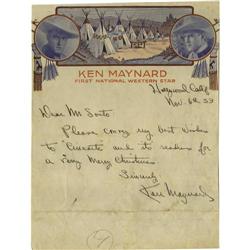 KEN MAYNARD
FIRST NATIONAL WESTERN STAR
Hollywood Calif
Nov. 6th 33
Dear Mr
Please convey my best wishes
to and its readers for
a Very Merry Christmas
Sincerely
Ken Maynard